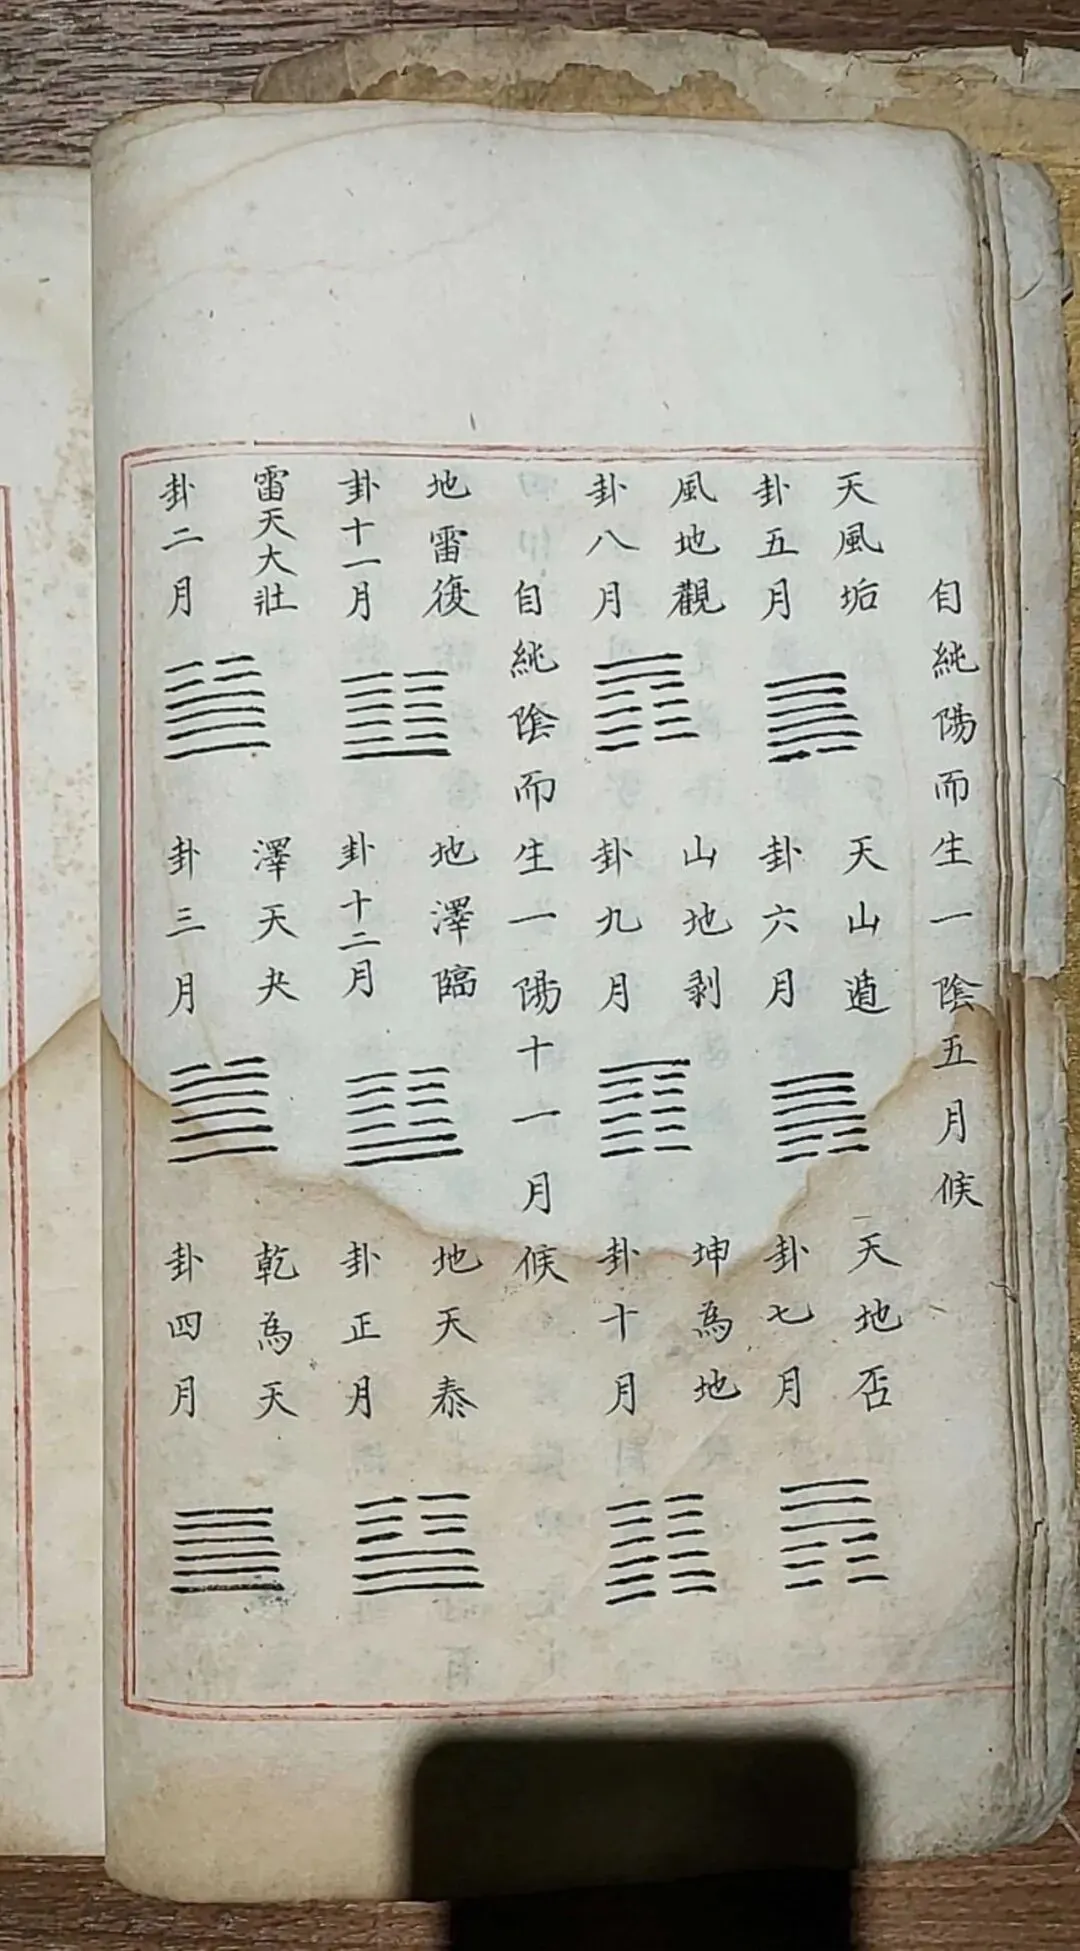 自純陽而生一陰五月候
天風垢 天山遁 天地否
卦五月 卦六月 卦七月
風地觀 山地剥 坤為地
卦八月 卦九月 卦十月
自純陰而生一陽十一月候
地雷復 地澤臨 地天泰
卦十一月 卦十二月 卦正月
雷天大壯 澤天夬 乾為天
卦二月 卦三月 卦四月